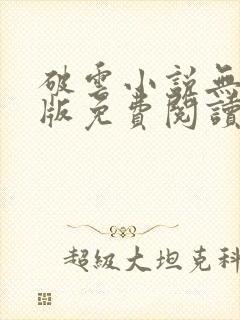 破雲小說無
版免費閱讀
超級大坦克科